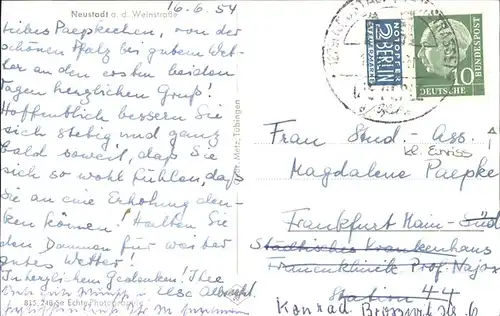 16.6.54
Neustadt a. d. Weinstraße
Liebes Paepkechen, von der
schönen Pfalz bei gutem Wet-
ter an den ersten beiden
Tagen herzlichen Gruß!
Hoffentlich bessern Sie
sich stetig und ganz
bald soweit, daß Sie
sich so wohl fühlen, daß
Sie an eine Erholung den-
ken können! Halten Sie
den Daumen für weiter
gutes Wetter!
In herzlichem Gedenken! Ihre
Ilse
815 Echte Photographie
Metz, Tübingen
NOTOPFER
2 BERLIN
STEUERMARKE
DEUTSCHE BUNDESPOST
10
Frau Stud.-Ass.
Magdalene Paepke
Frankfurt Main-Süd
Städtisches Krankenhaus
Frauenklinik Prof.
Station 44
Konrad